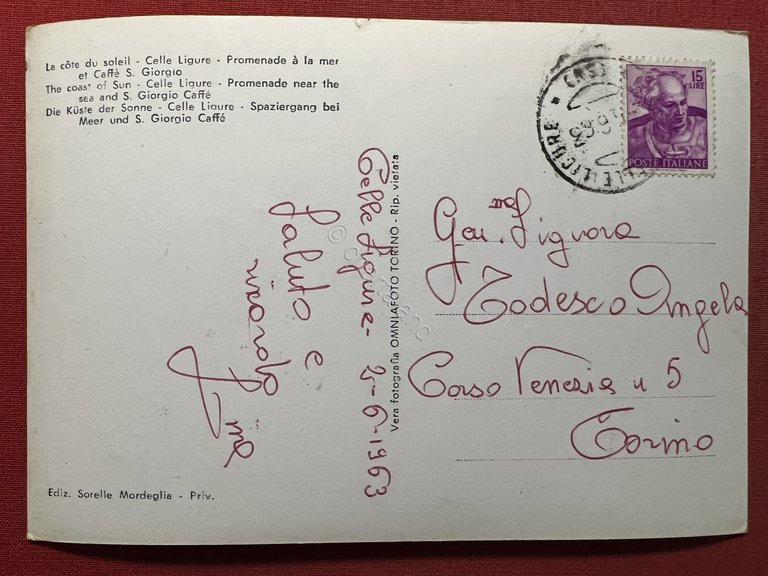 La côte du soleil - Celle Ligure - Promenade à la mer
et Caffè S. Giorgio
The coast of Sun - Celle Ligure - Promenade near the
sea and S. Giorgio Caffé
Die Küste der Sonne - Celle Ligure - Spaziergang bei
Meer und S. Giorgio Caffé
15
LIRE
POSTE ITALIANE
CELLE LIGURE
Celle Ligure - 25-6-1963
Saluto e
ricordo
Vera fotografia OMNIAFOTO TORINO - Rip. vietata
Gen. Signora
Todesco Angela
Corso Venezia n 5
Torino
Ediz. Sorelle Mordeglia - Priv.